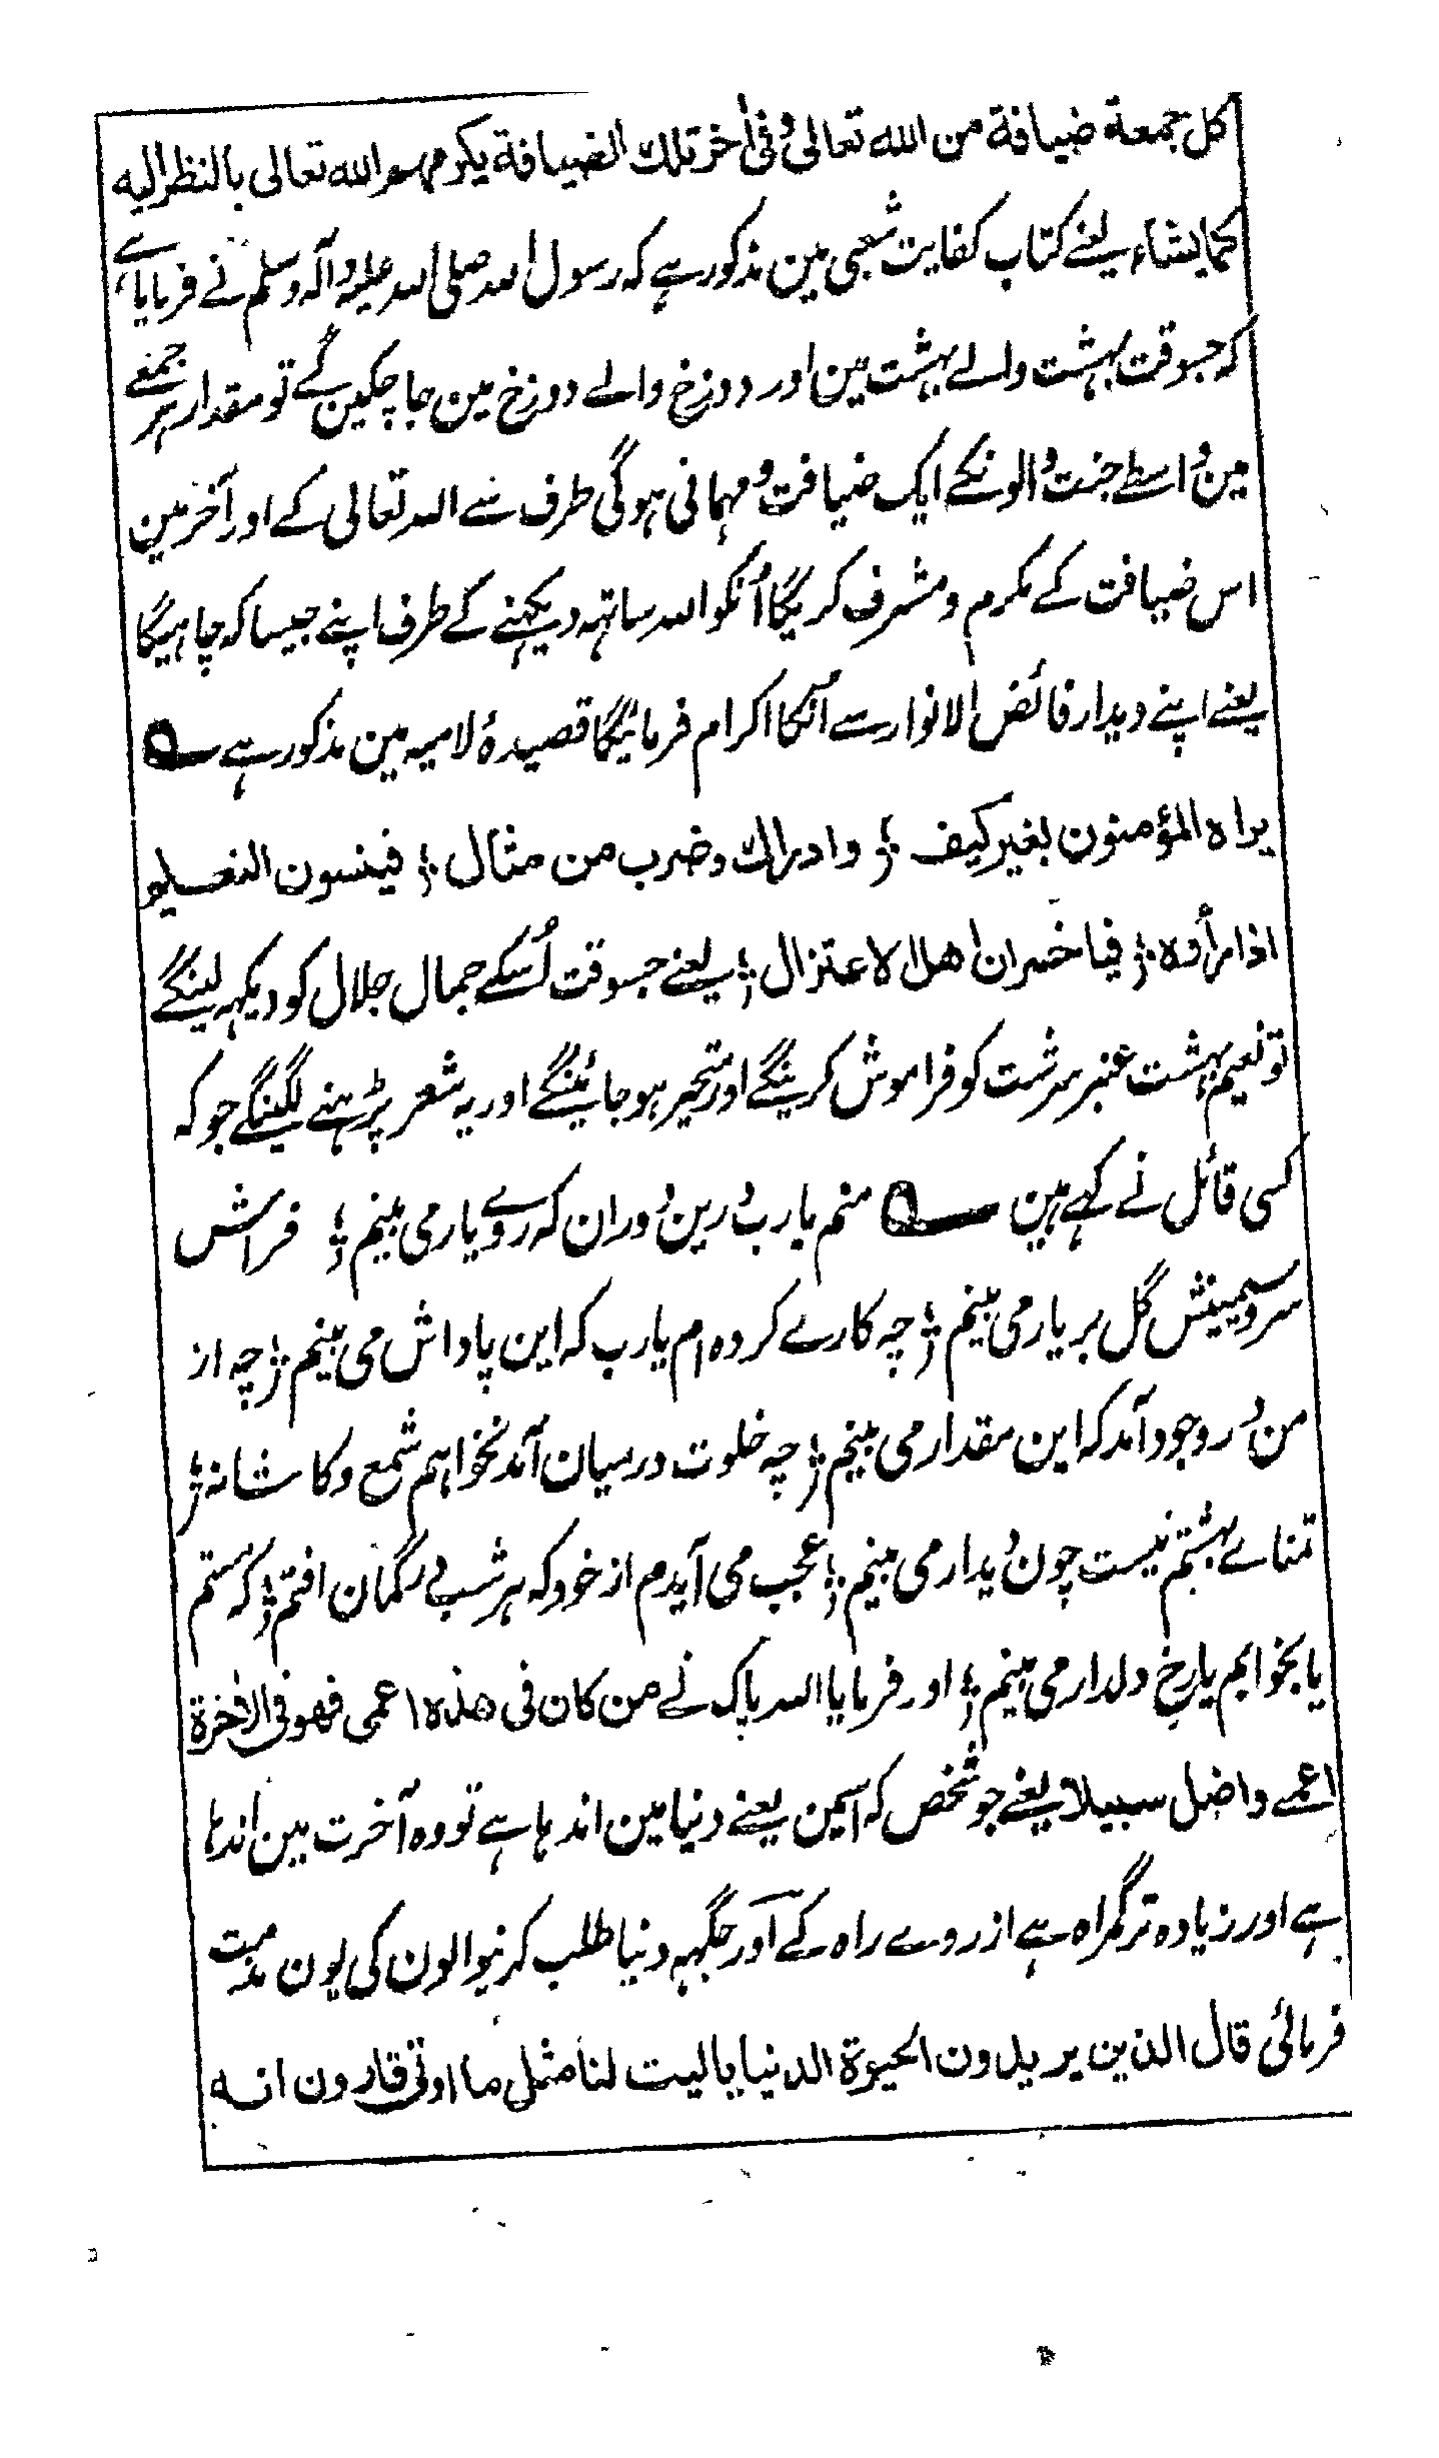 كل جمعة ضيافة من الله تعالىٰ وفی اٰخر تلك الضيافة يكرمهم الله تعالى بالنظر اليه
كما يشاء یعنے کتاب کفایت شعبی مین مذکور ہے کہ رسول اللہ صلی اللہ علیہ وآلہ وسلم نے فرمایا ہے
کہ جسوقت بہشت والے بہشت مین اور دوزخ والے دوزخ مین جا چکین گے تو مقدار ہر جمعے
مین واسطے جنت والونکے ایک ضیافت و مہمانی ہوگی طرف سے اللہ تعالی کے اور آخر مین
اس ضیافت کے مکرم و مشرف کریگا اُنکو اللہ ساتہہ دیکہنے کے طرف اپنے جیسا کہ چاہیگا
یعنے اپنے دیدار فائض الانوار سے اُنکا اکرام فرمائیگا قصیدۂ لامیہ مین مذکور ہے ؎
يراه المؤمنون بغير كيف ؛ وادراك وضرب من مثال ؛ فينسون النعيم
اذا رأوه ؛ فيا خسران اهل الاعتزال ؛ یعنے جسوقت اُسکے جمال جلال کو دیکہہ لینگے
تو نعیم بہشت عنبر سرشت کو فراموش کرینگے اور متحیر ہو جائینگے اور یہ شعر پڑہنے لگینگے جو کہ
کسی قائل نے کہے ہین ؎ منم یارب درین دوران که روے یار می بینم ؛ فراش
سرو سیمینش گل بر یار می بینم ؛ چه کارے کرده ام یارب که این پاداش می بینم ؛ چه از
من در وجود آمد که این مقدار می بینم ؛ چه خلوت درمیان آمد نخواهم شمع و کاشانه ؛
تمناے بهشتم نیست چون دیدار می بینم ؛ عجب می آیدم از خود که هر شب در گمان افتم ؛ که هستم
یا بخوابم یا رخ دلدار می بینم ؛ اور فرمایا اللہ پاک نے من كان فی هذه اعمى فهو فی الاٰخرة
اعمے واضل سبيلا یعنے جو شخص کہ اسمین یعنے دنیا مین اندہا ہے تو وہ آخرت مین اندہا
ہے اور زیادہ تر گمراہ ہے از روے راہ کے اور جگہہ دنیا طلب کرنیوالون کی یون مذمت
فرمائی قال الذين يريدون الحيوة الدنيا ياليت لنا مثل ما اوتی قارون انه